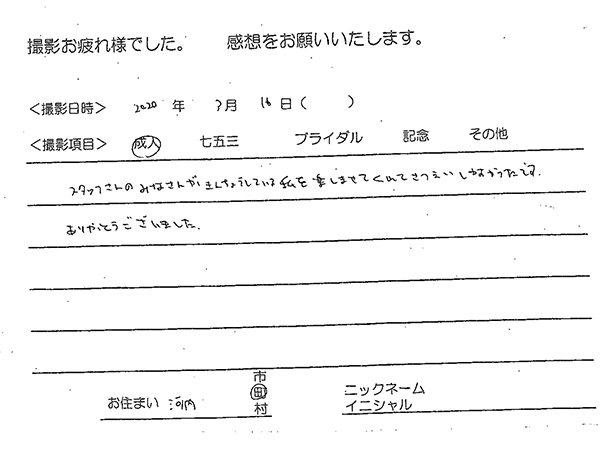 撮影お疲れ様でした。 感想をお願いいたします。
＜撮影日時＞ 2020 年 7月 16日( )
＜撮影項目＞ 成人 七五三 ブライダル 記念 その他
スタッフさんのみなさんがきんちょうしている私を楽しませてくれてさつえい しやすかったです。
ありがとうございました。
市
お住まい 河内 町 ニックネーム
村 イニシャル